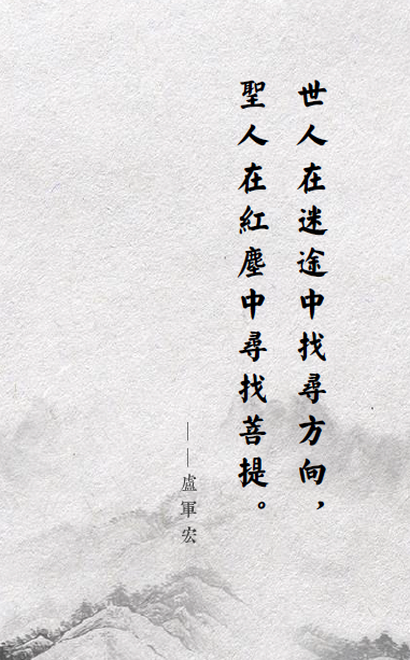 世人在迷途中找尋方向，
聖人在紅塵中尋找菩提。
——盧軍宏